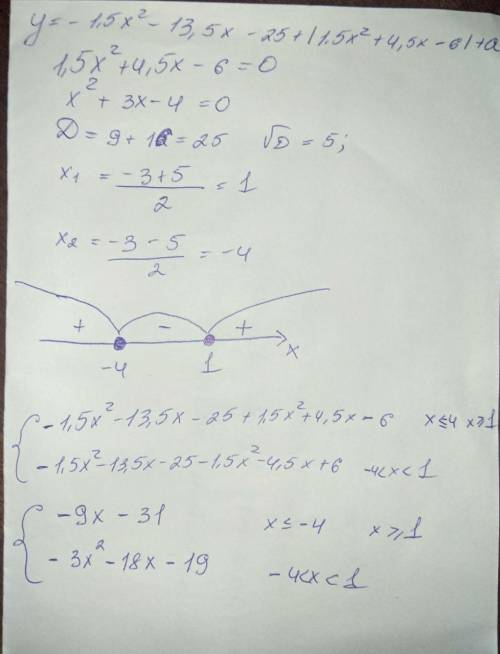 y = - 1,5x² - 13,5x - 25 + | 1,5x² + 4,5x - 6 | + a
1,5x² + 4,5x - 6 = 0
x² + 3x - 4 = 0
D = 9 + 16 = 25 √D = 5;
x₁ = (-3 + 5)/2 = 1
x₂ = (-3 - 5)/2 = -4
+ - +
-4 1 x
{ -1,5x² - 13,5x - 25 + 1,5x² + 4,5x - 6 x ≤ 4 x ≥ 1
-1,5x² - 13,5x - 25 - 1,5x² - 4,5x + 6 -4 < x < 1
{ -9x - 31 x ≤ -4 x ≥ 1
-3x² - 18x - 19 -4 < x < 1